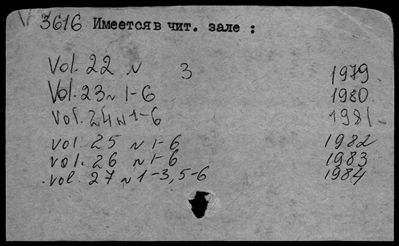 3616 Имеется в чит. зале :
Vol. 22 N 3 1979
Vol. 23 N 1-6 1980
Vol. 24 N 1-6 1981
vol. 25 N 1-6 1982
vol. 26 N 1-6 1983
vol. 27 N 1-3, 5-6 1984